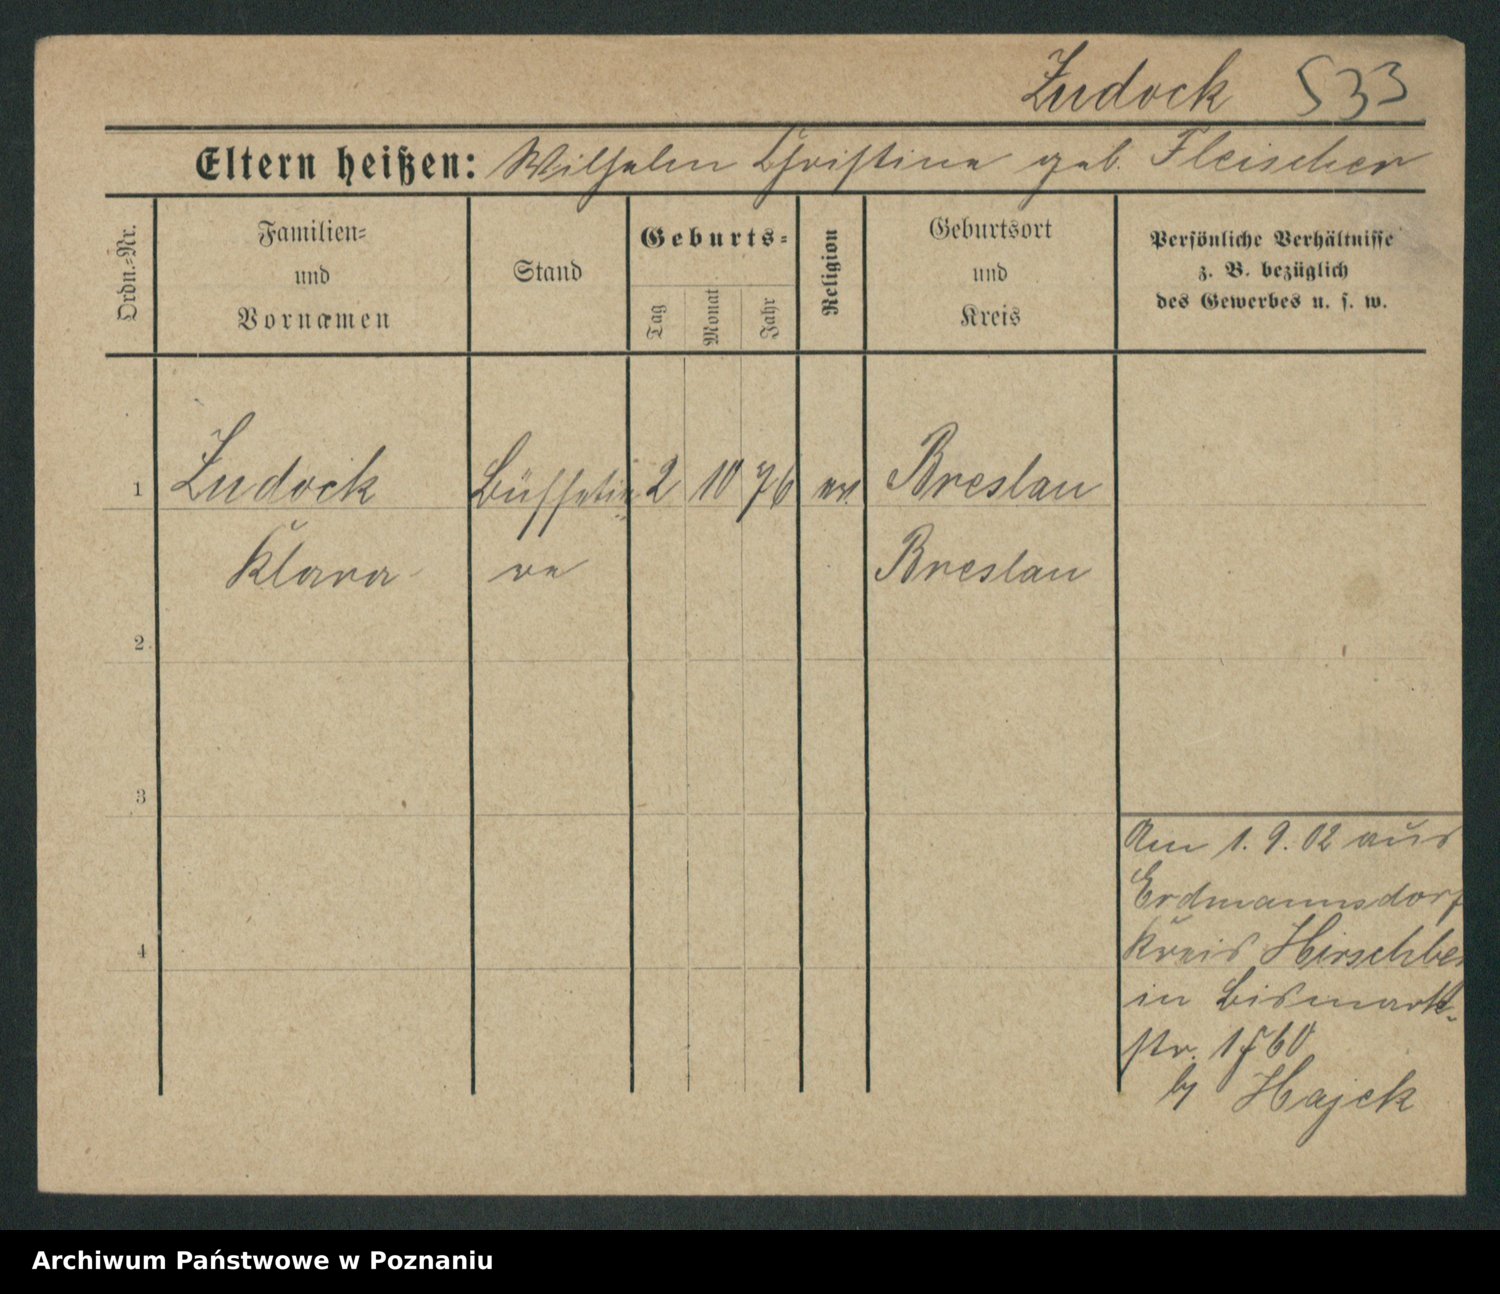 Zudock 533
Eltern heißen: Wilhelm Christine geb. Fleischer
Ordn.-Nr.
Familien-
und
Vornamen
Stand
Geburts-
Tag
Monat
Jahr
Religion
Geburtsort
und
Kreis
Persönliche Verhältnisse
z. B. bezüglich
des Gewerbes u. s. w.
1 Zudock Büffetie- 2 10 76 ev. Breslau
Klara re Breslau
2
3
Am 1. 9. 02 aus
Erdmannsdorf
Kreis Hirschbe
4
in Bismark-
str. 1
Hajek
Archiwum Państwowe w Poznaniu